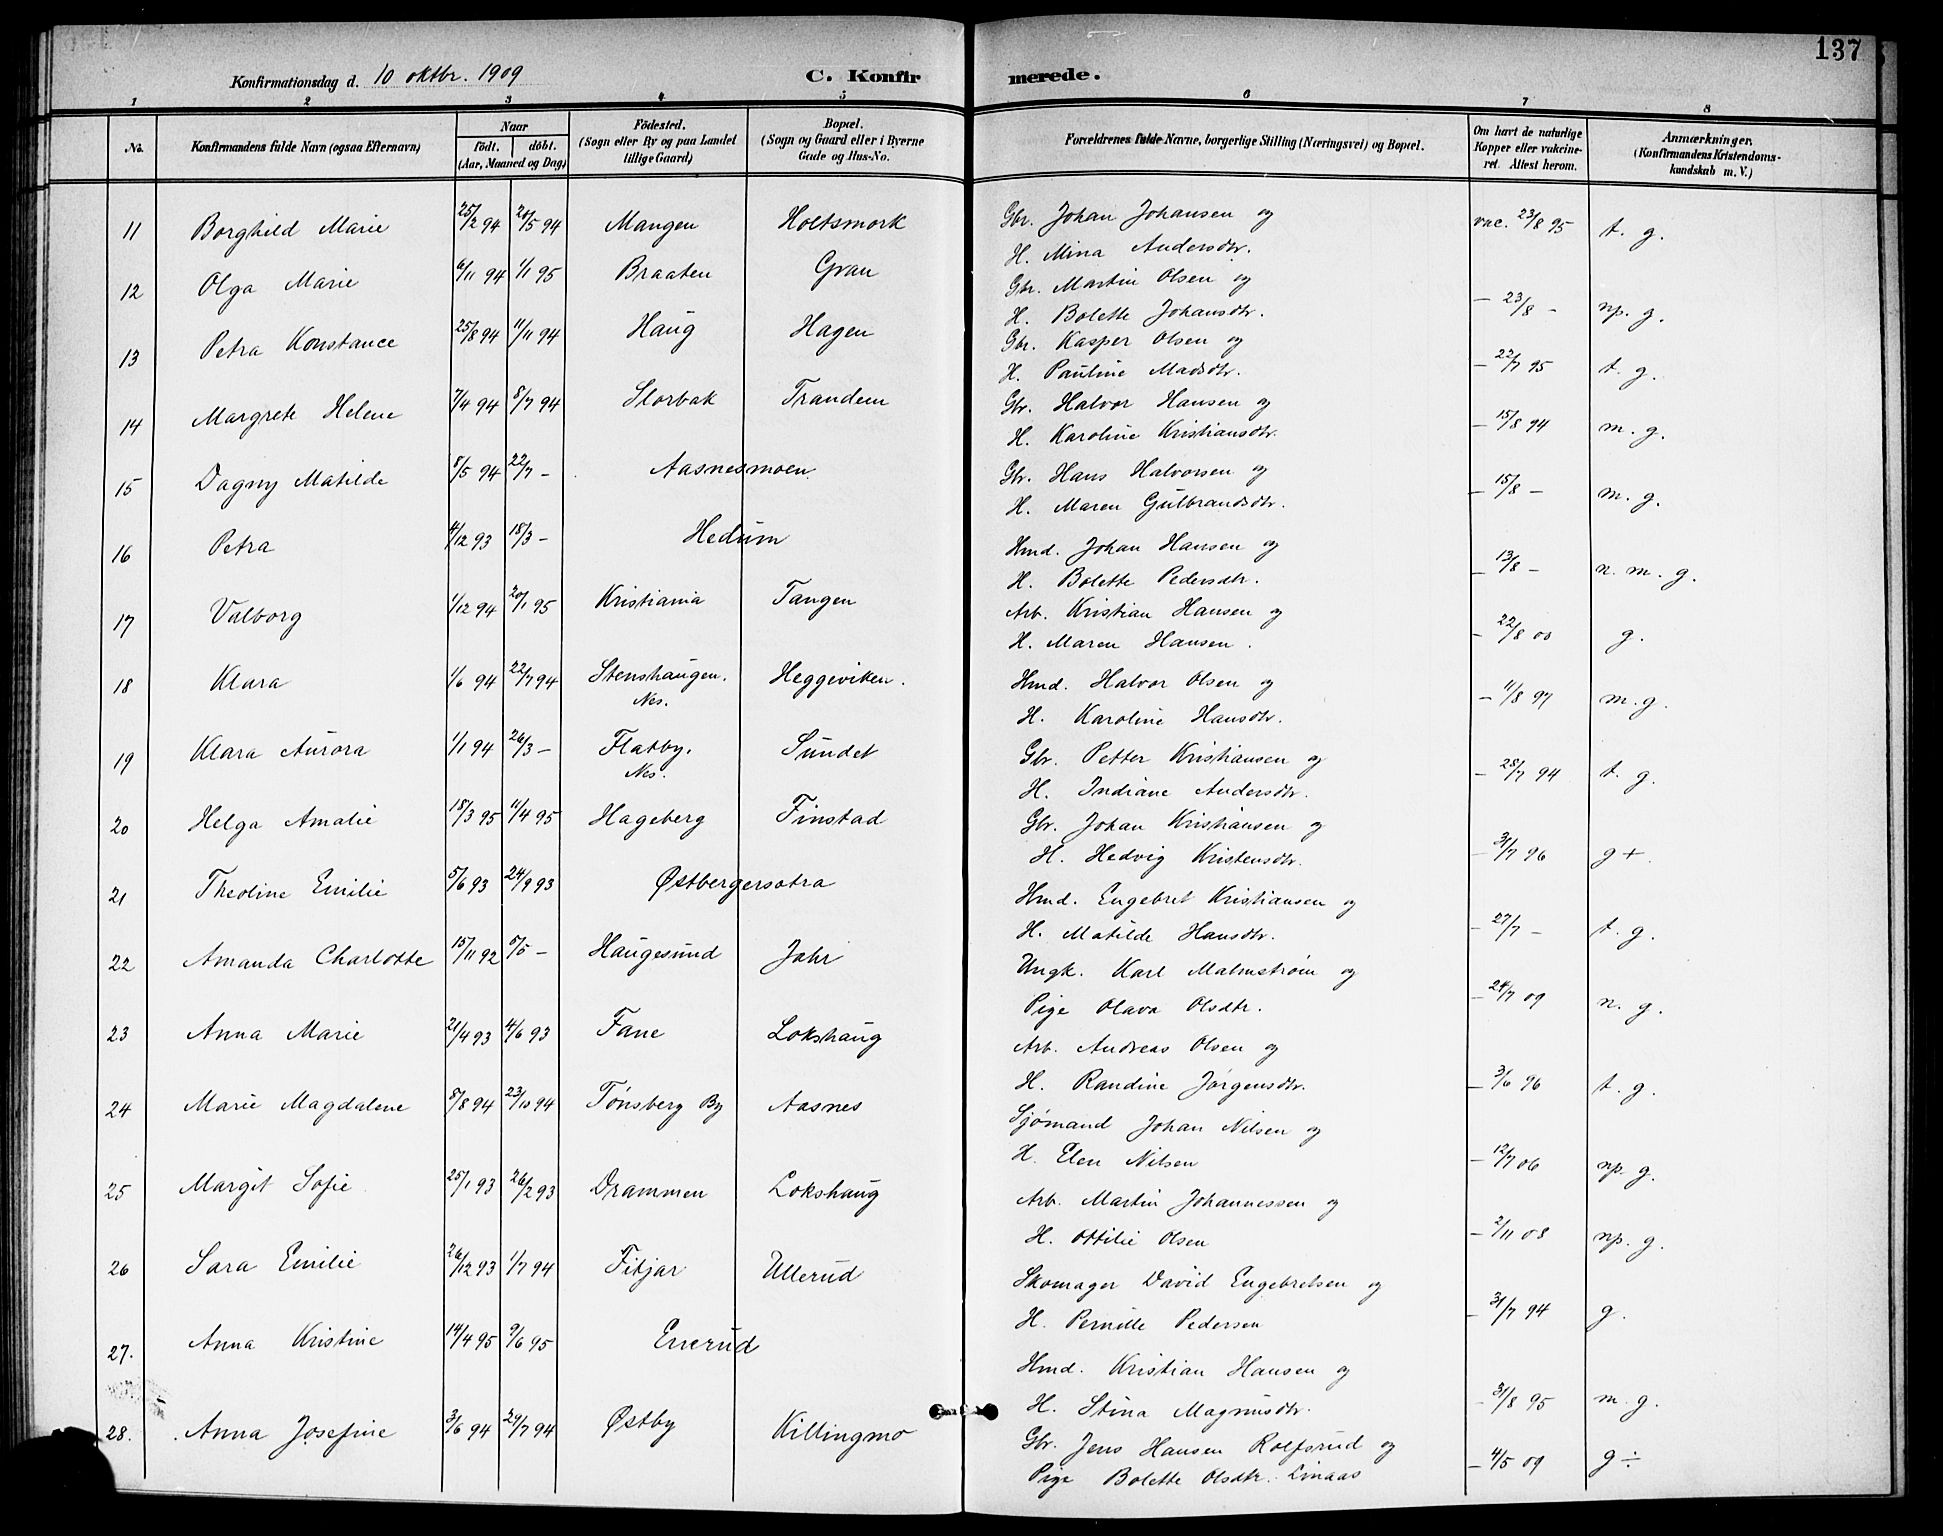 137
Konfirmationsdag d. 10 oktbr. 1909 C. Konfirmerede.
1 2 3 4 5 6 7 8
No. Konfirmandens fulde Navn (ogsaa Efternavn) Naar födt. döbt. (Aar, Maaned og Dag) Födested. (Sogn eller By og paa Landet tillige Gaard) Bopæl. (Sogn og Gaard eller i Byerne Gade og Hus-No. Forældrenes fulde Navne, borgerlige Stilling (Næringsvei) og Bopæl. Om havt de naturlige Kopper eller vakcineret. Attest herom. Anmærkninger. (Konfirmandens Kristendomskundskab m. V.)
11 Borghild Marie 25/2 94 20/5 94 Mangen Holtsmork Gbr. Johan Johansen og vac. 23/8 95 t. g.
H. Mina Andersdtr.
12 Olga Marie 6/11 94 1/1 95 Braaten Gran Gbr. Martin Olsen og
H. Bolette Johansdtr. – 23/8 – np. g.
13 Petra Konstance 25/8 94 11/11 94 Haug Hagen Gbr. Kasper Olsen og
H. Pauline Madsdtr. – 22/7 95 t. g.
14 Margrete Helene 7/4 94 8/7 94 Storbak Trandem Gbr. Halvor Hansen og
H. Karoline Kristiansdtr. – 15/8 94 m. g.
15 Dagny Matilde 8/5 94 22/7 – Aasnesmoen Gbr. Hans Halvorsen og
H. Maren Gulbrandsdtr. – 15/8 – m. g.
16 Petra 4/12 93 18/3 – Hedum Hmd. Johan Hansen og
H. Bolette Pedersdtr. – 13/8 – n. m. g.
17 Valborg 1/12 94 20/1 95 Kristiania Tangen Arb. Kristian Hansen og
H. Maren Hansen. – 22/8 00 g.
18 Klara 1/6 94 22/7 94 Stenshaugen. Nes. Heggeviken. Hmd. Halvor Olsen og
H. Karoline Hansdtr. – 11/8 97 m. g.
19 Klara Aurora 1/1 94 26/3 – Flatby. Nes. Sundet Gbr. Petter Kristiansen og
H. Indiane Andersdtr. – 28/7 94 t. g.
20 Helga Amalie 18/3 95 11/4 95 Hageberg Finstad Gbr. Johan Kristiansen og
H. Hedvig Kristensdtr. – 31/7 96 g +.
21 Theoline Emilie 5/6 93 24/9 93 Østbergersætra Hmd. Engebret Kristiansen og
H. Matilde Hansdtr. – 27/7 – t. g.
22 Amanda Charlotte 15/11 92 5/5 – Haugesund Jahr Ungk. Karl Malmstrøm og
Pige Olava Olsdtr. – 24/7 09 n. g.
23 Anna Marie 21/4 93 4/6 93 Fane Lokshaug Arb. Andreas Olsen og
H. Randine Jørgensdtr. – 3/6 96 t. g.
24 Marie Magdalene 8/8 94 23/10 94 Tønsberg By Aasnes Sjømand Johan Nilsen og
H. Elen Nilsen – 12/7 06 np. g.
25 Margit Sofie 25/1 93 26/2 93 Drammen Lokshaug Arb. Martin Johannessen og
H. Ottilie Olsen – 2/11 08 np. g.
26 Sara Emilie 26/12 93 1/7 94 Fitjar Ullerud Skomager David Engebretsen og
H. Pernille Pedersen – 31/7 94 g.
27. Anna Kristine 14/4 95 9/6 95 Enerud Hmd. Kristian Hansen og
H. Stina Magnusdtr. – 31/8 95 m. g.
28. Anna Josefine 3/6 94 29/7 94 Østby Killingmo Gbr. Jens Hansen Rolfsrud og
Pige Bolette Olsdtr. Linaas – 4/5 09 g ÷